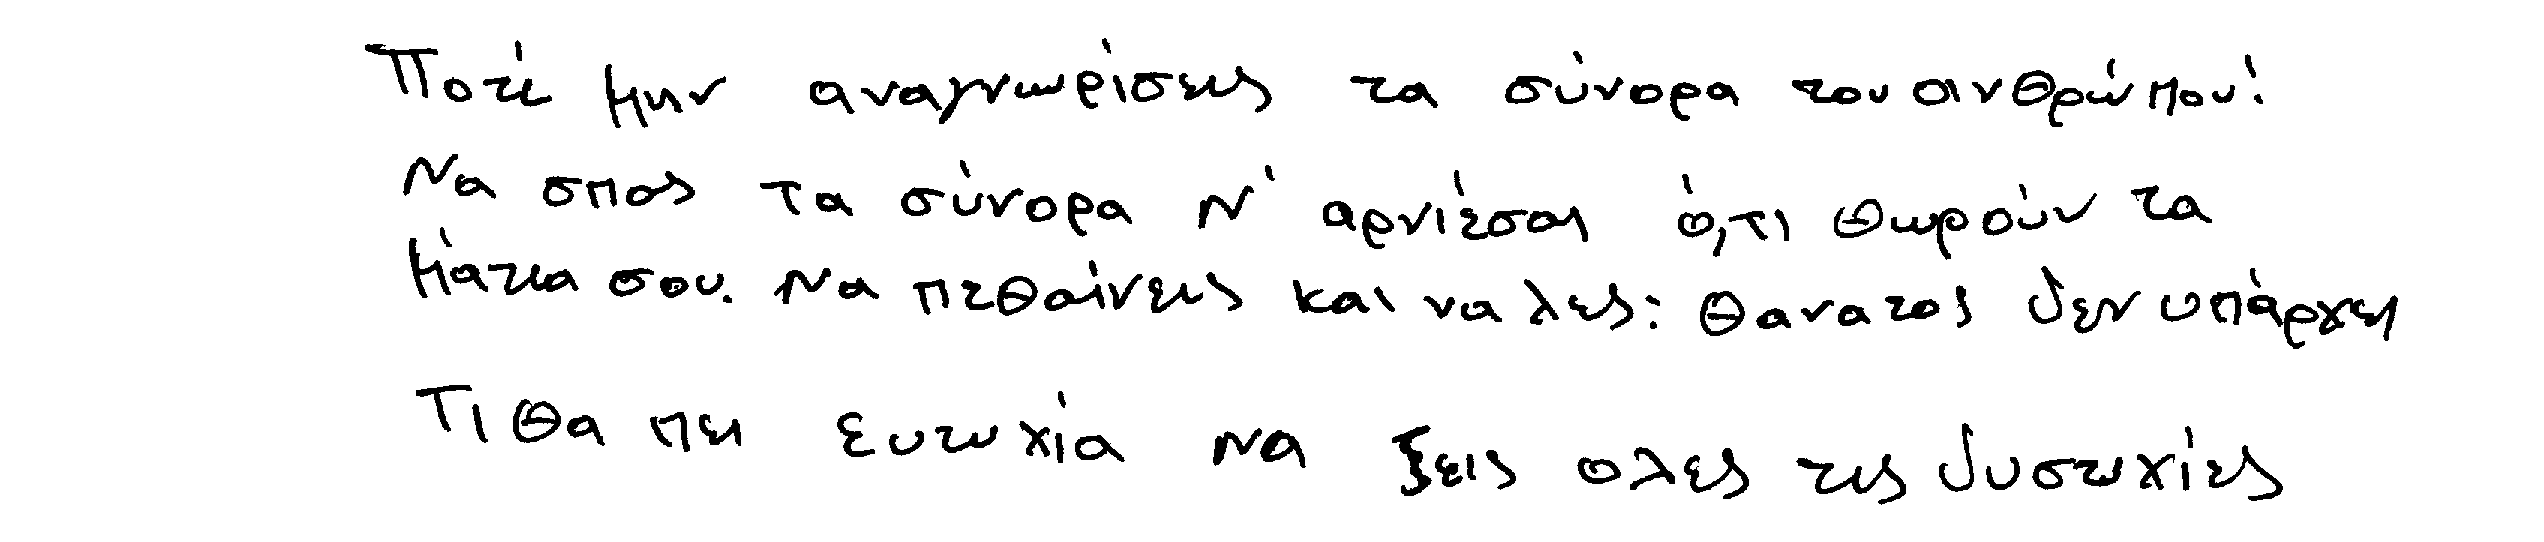 Ποτέ μην αναγνωρίσεις τα σύνορα του ανθρώπου!
Να σπας τα σύνορα Ν' αρνιέσαι ό,τι θωρούν τα
μάτια σου. Να πεθαίνεις και να λες: Θανατος δεν υπάρχει
Τι θα πει ευτυχία να ζεις ολες τις δυστυχίες